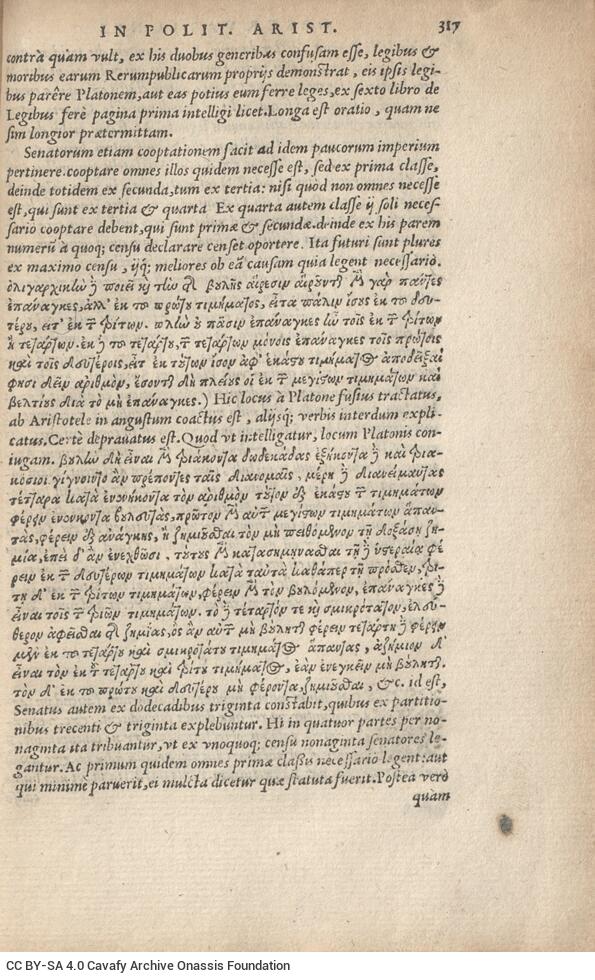 IN POLIT. ARIST. 317
contrà quàm vult, ex his duobus generibus confusam esse, legibus &
moribus earum Rerumpublicarum proprijs demonstrat, eis ipsis legi-
bus parêre Platonem, aut eas potius eum ferre leges, ex sexto libro de
Legibus ferè pagina prima intelligi licet. Longa est oratio, quam ne
sim longior prætermittam.
Senatorum etiam cooptationem facit ad idem paucorum imperium
pertinere. cooptare omnes illos quidem necesse est, sed ex prima classe,
deinde totidem ex secunda, tum ex tertia: nisi quòd non omnes necesse
est, qui sunt ex tertia & quarta Ex quarta autem classe ij soli neces-
sario cooptare debent, qui sunt primæ & secundæ. deinde ex his parem
numerū à quoq; censu declarare censet oportere. Ita futuri sunt plures
ex maximo censu, ijq; meliores ob eā causam quia legent necessariò.
ἐπάναγκες, ἀλλ' ἐκ τοῦ πρώτου τιμήματος, εἶτα πάλιν ἴσους ἐκ τοῦ δευ-
τέρου, εἶτ' ἐκ τῶν τρίτων. πλὴν οὐ πᾶσιν ἐπάναγκες ἦν τοῖς ἐκ τῶν τρίτων
ἢ τετάρτων. ἐκ
φησι δεῖν ἀριθμὸν, ἔσονται δὴ πλείους οἱ ἐκ τῶν μεγίστων τιμημάτων καὶ
βελτίους διὰ τὸ μὴ ἐπάναγκες.) Hic locus à Platone fusius tractatus,
ab Aristotele in angustum coactus est, alijsq; verbis interdum expli-
catus. Certè deprauatus est. Quod vt intelligatur, locum Platonis con-
iugam. βουλὴν δὴ εἶναι μὲν τριάκοντα δωδεκάδας ἑξήκοντα δὲ καὶ τρια-
κόσιοι γίγνοιντο ἂν πρέποντες ταῖς διανομαῖς. μέρη δὲ διανείμαντας
τέτταρα κατὰ ἐνενήκοντα τὸν ἀριθμὸν τούτων ἐξ ἑκάστου τῶν τιμημάτων
φέρειν ἐνενήκοντα βουλευτὰς, πρῶτον μὲν ἐκ τῶν μεγίστων τιμημάτων ἅπαν-
τας, φέρειν ἐξ ἀνάγκης, ἢ ζημιοῦσθαι τὸν μὴ πειθόμενον τῇ δοξάσῃ ζη-
μίᾳ, ἐπεὶ δ' ἂν ἐνεχθῶσι, τούτους μὲν κατασημήνασθαι τῇ δὲ ὑστεραίᾳ φέ-
ρειν ἐκ τῶν δευτέρων τιμημάτων κατὰ ταὐτὰ καθάπερ τῇ πρόσθεν, τρί-
τῃ δ' ἐκ τῶν τρίτων τιμημάτων, φέρειν μὲν τὸν βουλόμενον, ἐπάναγκες δὲ
εἶναι τοῖς τῶν τριῶν τιμημάτων. τὸ δὲ τέταρτόν τε καὶ σμικρότατον, ἐλεύ-
θερον ἀφεῖσθαι τῆς ζημίας, ὃς ἂν αὐτῶν μὴ βούληται φέρειν τετάρτῃ δὲ φέρειν
μὲν ἐκ τοῦ τετάρτου καὶ σμικροτάτου τιμήματος ἅπαντας, ἀζήμιον δ'
εἶναι τὸν ἐκ τοῦ τετάρτου καὶ τρίτου τιμήματος, ἐὰν ἐνεγκεῖν μὴ βούληται.
τὸν δ' ἐκ τοῦ πρώτου καὶ δευτέρου μὴ φέροντα, ζημιοῦσθαι, &c. id est,
Senatus autem ex dodecadibus triginta constabit, quibus ex partitio-
nibus trecenti & triginta explebuntur. Hi in quatuor partes per no-
naginta ita tribuantur, vt ex vnoquoq; censu nonaginta senatores le-
gantur. Ac primum quidem omnes primæ classis necessario legent: aut
qui minimè paruerit, ei mulcta dicetur quæ statuta fuerit. Postea verò
quàm
CC BY-SA 4.0 Cavafy Archive Onassis Foundation